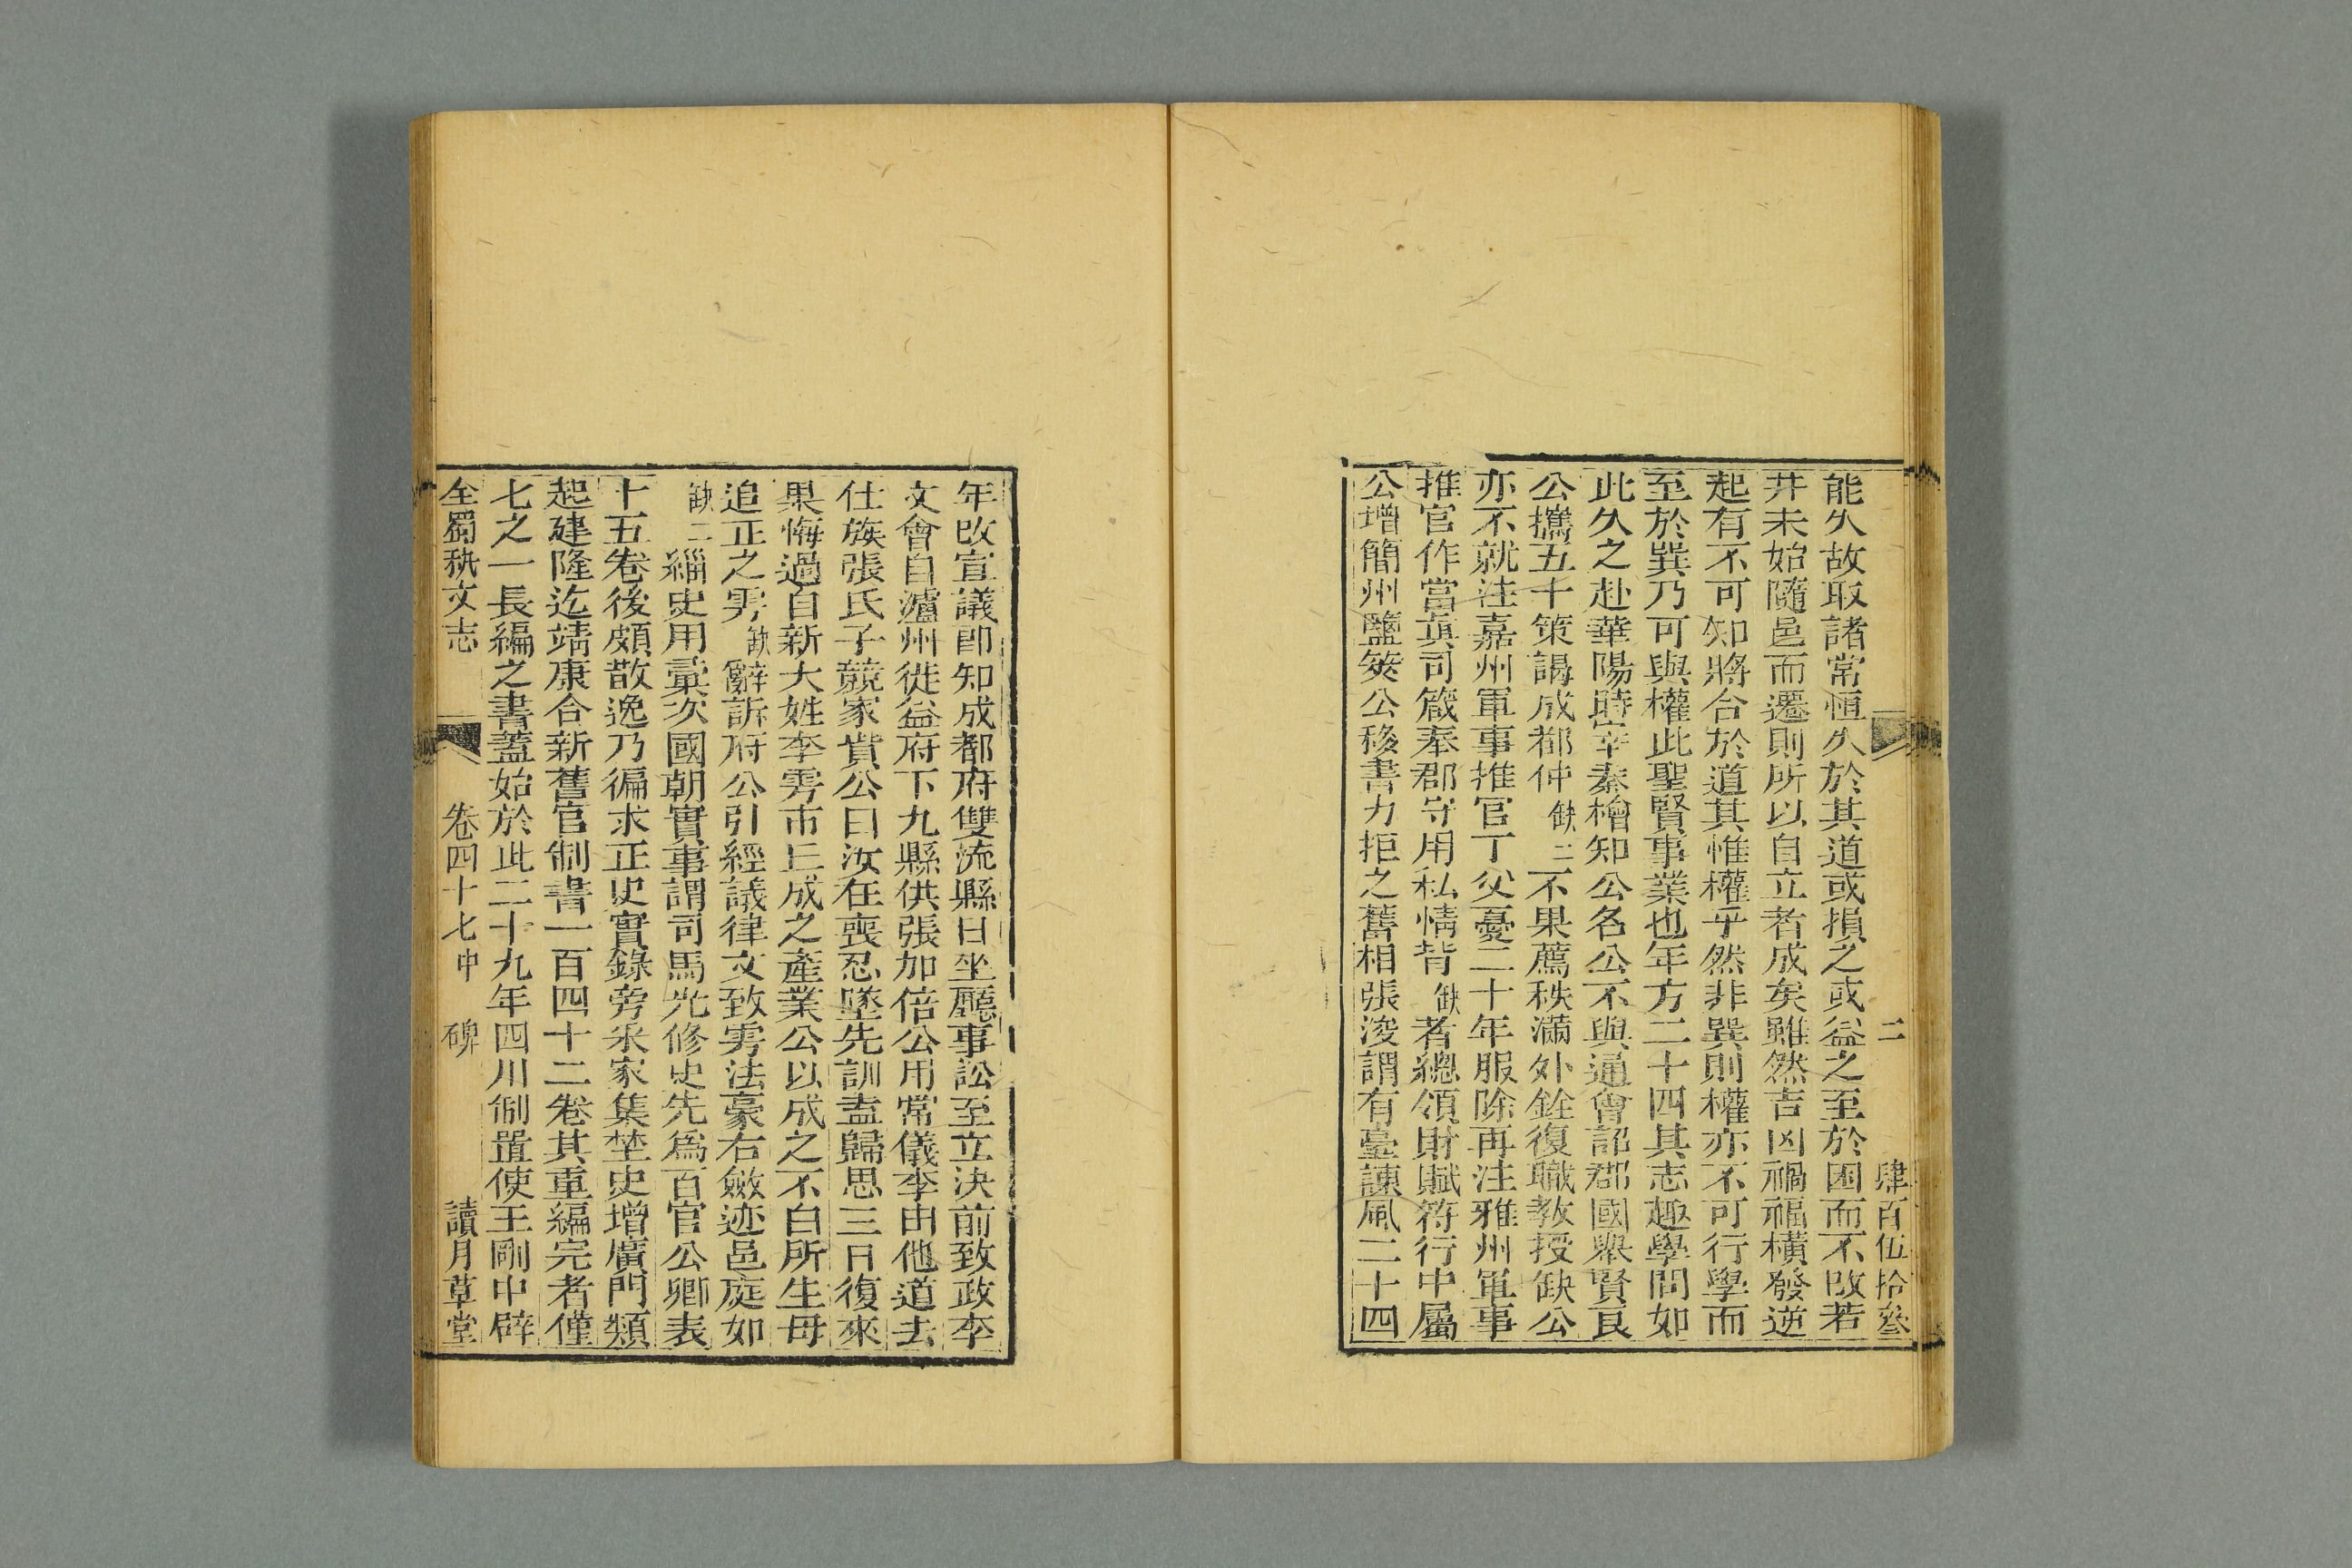 二　肆百伍拾叄
能久故取諸常恒久於其道或損之或益之至於困而不改若
井未始隨邑而遷則所以自立者成矣雖然吉凶禍福橫發逆
起有不可知將合於道其惟權乎然非巽則權亦不可行學而
至於巽乃可與權此聖賢事業也年方二十四其志趣學問如
此久之赴華陽時宰秦檜知公名公不與通會詔郡國舉賢良
公攜五十策謁成都仲缺二不果薦秩滿外銓復職教授缺公
亦不就注嘉州軍事推官丁父憂二十年服除再注雅州軍事
推官作當真司箴奉郡守用私情背缺者總領財賦符行中屬
公增簡州鹽筴公移書力拒之舊相張浚謂有臺諫風二十四
年改宣議郎知成都府雙流縣日坐廳事訟至立決前致政李
文會自瀘州徙益府下九縣供張加倍公用常儀李由他道去
仕族張氏子競家貲公曰汝在喪忍墜先訓盍歸思三日復來
果悔過自新大姓李雱市二成之產業公以成之不白所生母
追正之雱缺辭訴府公引經議律文致雱法豪右斂迹邑庭如
缺二緇史用彙次國朝實事謂司馬光修史先為百官公卿表
十五卷後頗散逸乃徧求正史實錄旁采家集埜史增廣門類
起建隆迄靖康合新舊官制書一百四十二卷其重編完者僅
七之一長編之書蓋始於此二十九年四川制置使王剛中辟
全蜀秇文志　卷四十七中　碑　讀月草堂